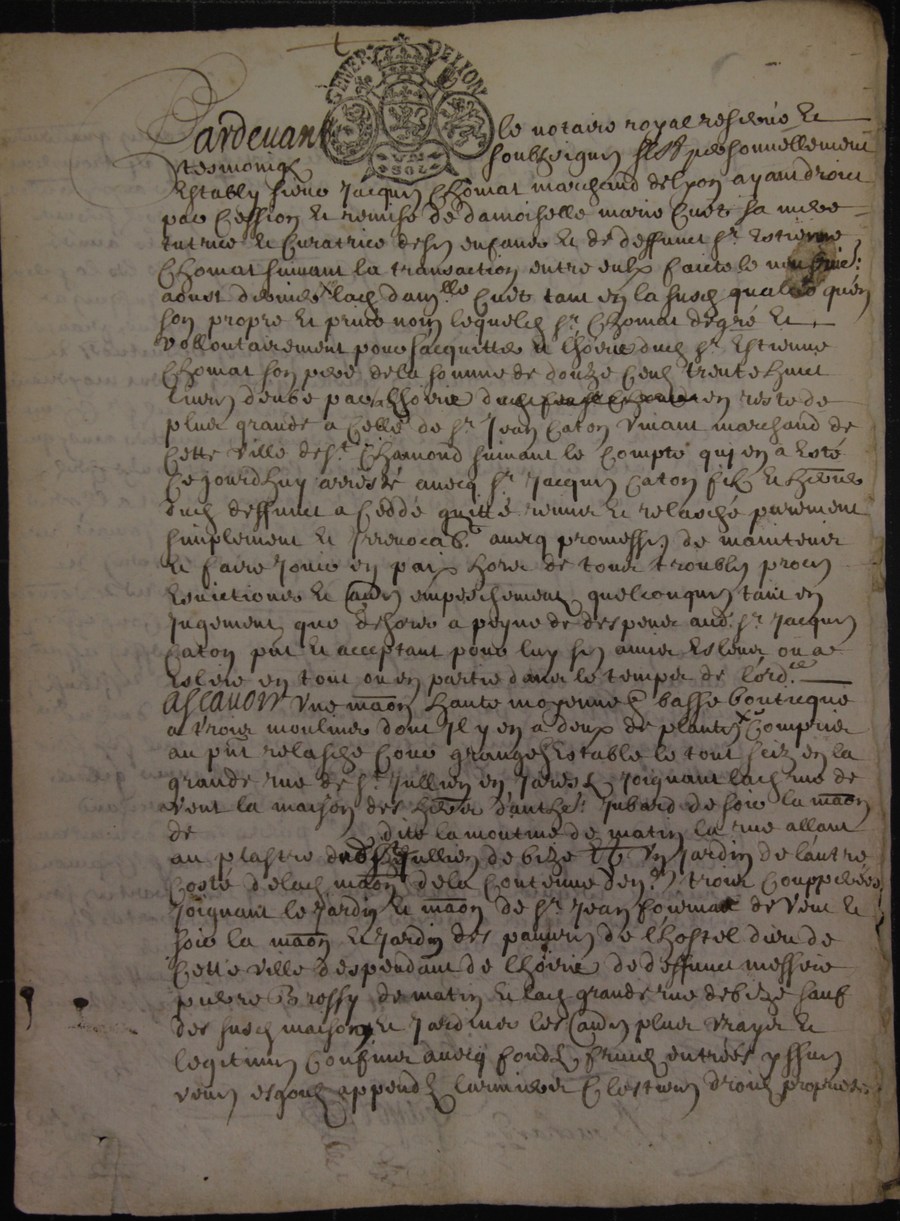 GENER. DE LYON
Pardevant le notaire royal reservé et
tesmoings soubzsignes personnellement
Estably sieur Jacques Chomat marchand de Lyon ayant droict
par cession et remise de damoiselle marie Cuet sa mere
tutrice et curatrice de ses enfans et de deffunct sr. Estienne
Chomat suivant la transaction entre eulx faicte le
aoust dernier lad. dam.lle Cuet tant en la susd. qualité qu'en
son propre et privé nom lequel sr. Chomat de gré et
vollontairement pour s'acquitter et l'hoirie dud. sr. Estienne
Chomat son pere de la somme de douze cens trente huict
livres deube par l'hoirie dud. en reste de
plus grande a celle de sr. Jean Caton vivant marchand de
cette ville de St. Chamond suivant le compte qui en a esté
cejourdhuy arresté avecq sr. Jacques Caton filz et heritier
dud. deffunct a ceddé quitté remis et relasché purement
simplement et irrevocab. avecq promesses de maintenir
et faire jouir en paix hors de tous troubles proces
evictions et aues empeschemens quelconques tant en
jugement que dehors a peyne de despens aud. sr. Jacques
Caton pnt et acceptant pour luy ses amis esleus ou a
eslire en tout ou en partie dans le temps de l'ord.ce
Ascavoir une maon haulte moyenne basse bouticque
a trois moulins dont il y en a deux de plantes compris
au pnt relasche cour grange estable le tout sciz en la
grande rue de St. Jullien en Jares joignant lad. rue de
vent la maison des hers d'anthe. Jubard de soir la maon
de dite la moutine de matin la rue allant
au plastre dud. St. Jullien de bize et un jardin de l'autre
costé de lad. maon de la contenue d'en. trois couppees
joignant le jardin et maon de sr. Jean fournas de vent et
soir la maon et jardin des pauvres de l'hostel dieu de
cette ville despendant de l'hoirie de deffunct messire
pierre Brossy de matin et lad. grande rue de bize sauf
des susd. maison et jardins les aues plus vrays et
legitimes confins avecq fondz fruictz entrées yssues
veues esgouts appendz larmiers et droictz proprietés